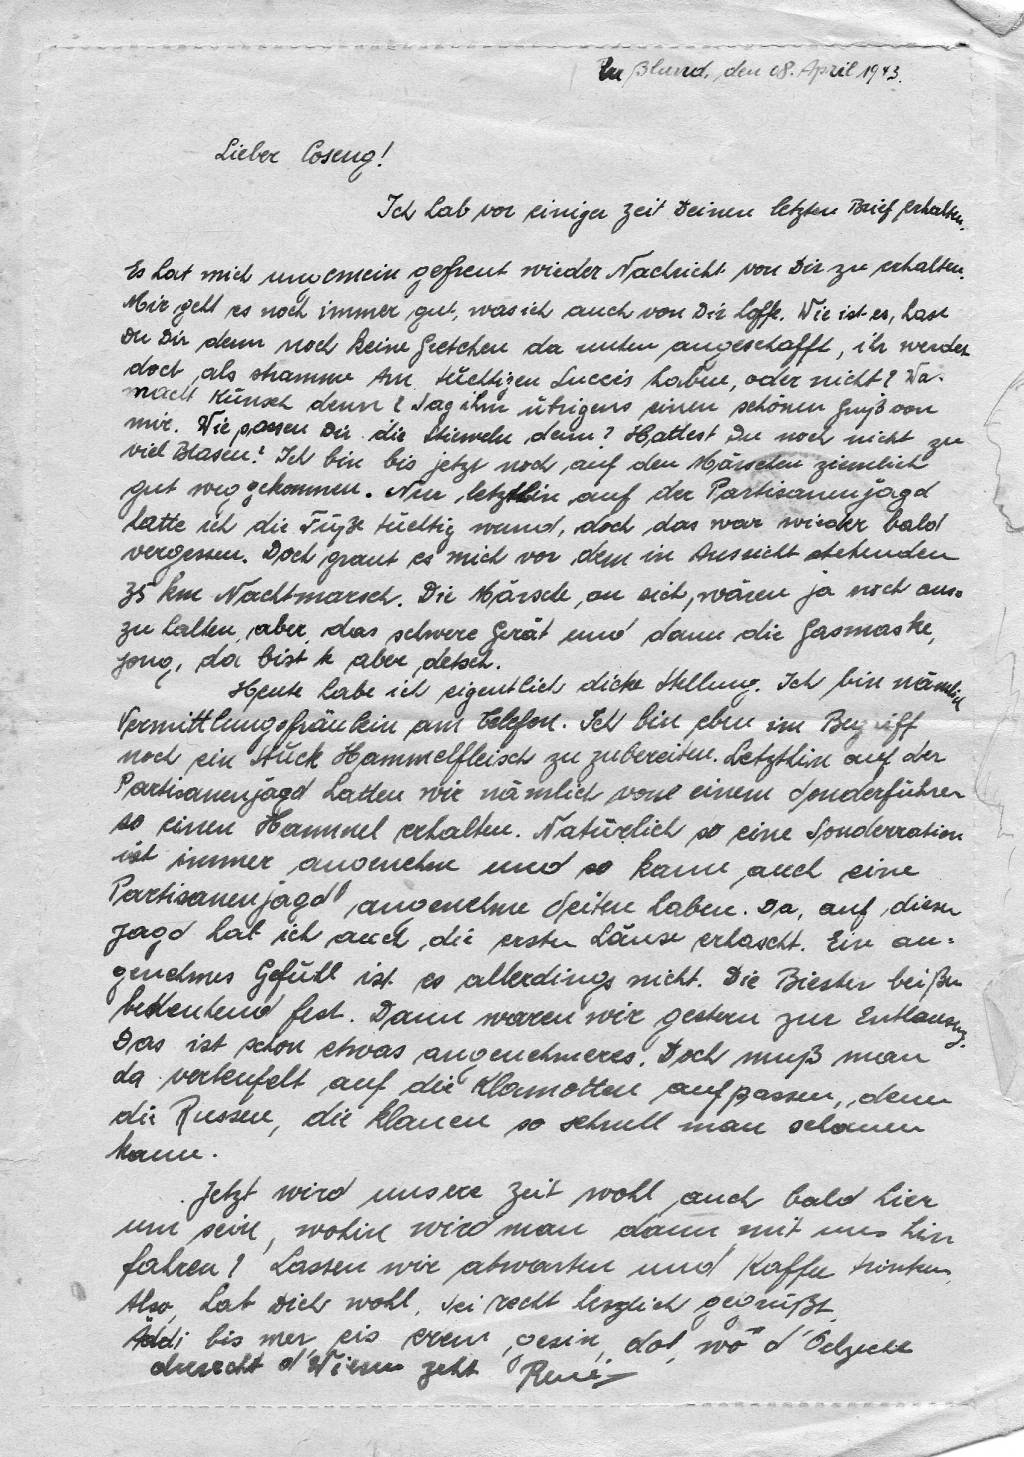 Rußland, den 08. April 1943.
Lieber Coseng!
Ich hab vor einiger Zeit Deinen letzten Brief erhalten.
Es hat mich ungemein gefreut wieder Nachricht von Dir zu erhalten.
Mir geht es noch immer gut, was ich auch von Dir hoffe. Wie ist es, hast
Du Dir denn noch keine Gretchen da unten angeschafft, ihr werdet
doch als stramme tüchtigen Succès haben, oder nicht? Wa-
macht Künsch denn? Sag ihm übrigens einen schönen Gruß von
mir. Wie passen Dir die Stieweln denn? Hattest Du noch nicht zu
viel Blasen? Ich bin bis jetzt noch auf den Märschen ziemlich
gut weggekommen. Nur letzthin auf der Partisanenjagd
hatte ich die Füße tüchtig wund, doch das war wieder bald
vergessen. Doch graut es mich vor dem in Aussicht stehenden
35 km Nachtmarsch. Die Märsche, an sich, wären ja noch aus-
zu halten, aber das schwere Gerät und dann die Gasmaske,
jong, da bist k aber detsch.
Heute habe ich eigentlich dicke Stellung. Ich bin nämlich
Vermittlungsfräulein am Telefon. Ich bin eben im Begriff
noch ein Stück Hammelfleisch zu zubereiten. Letzthin auf der
Partisanenjagd hatten wir nämlich von einem Sonderführer
so einen Hammel erhalten. Natürlich so eine Sonderration
ist immer angenehm und so kann auch eine
Partisanenjagd angenehme Seiten haben. Da, auf dieser
Jagd hab ich auch die ersten Läuse erhascht. Ein an-
genehmes Gefühl ist es allerdings nicht. Die Biester beißen
bedeutend fest. Dann waren wir gestern zur Entlausung.
Das ist schon etwas angenehmeres. Doch muß man
da verteufelt auf die Klamotten aufpassen, denn
die Russen, die klauen so schnell man schauen
kann.
Jetzt wird unsere Zeit wohl auch bald hier
um sein, wohin wird man dann mit uns hin
fahren? Lassen wir abwarten und Kaffee trinken.
Also, hab Dich wohl, sei recht herzlich gegrüßt,
Äddi bis mer eis erem gesin, dot, wo d'Uelzecht
duerecht d'Wisen zeht René